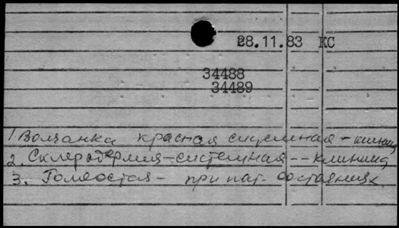 28.11.83 КС
34488
34489
1 Волчанка красная системная - клиника
2. Склеродермия - системная - - клиника
3. Гомеостаз - при пат. состояниях